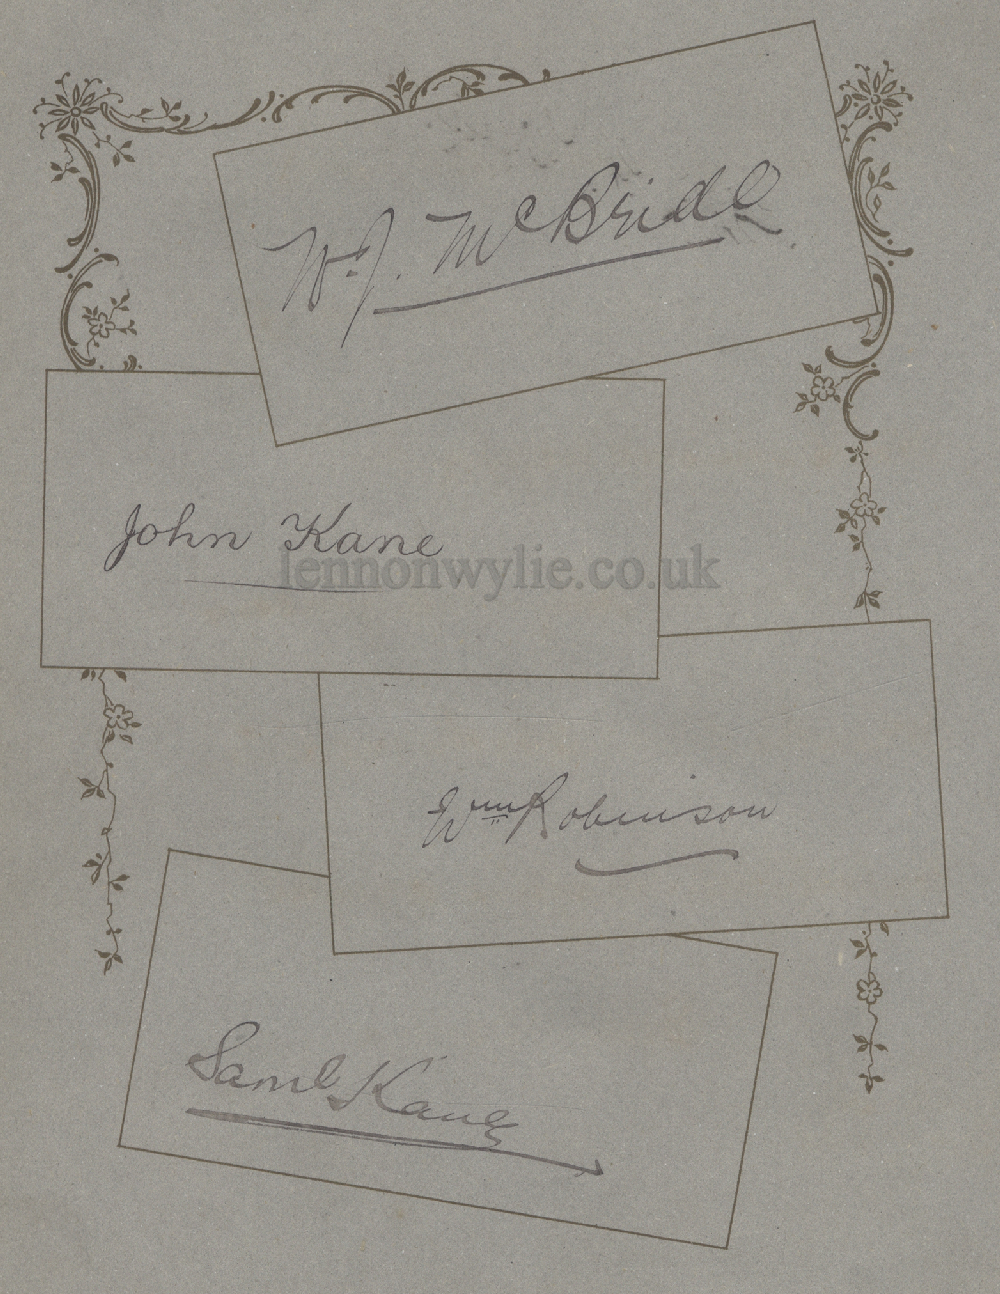 W.J. McBride
John Kane
lennonwylie.co.uk
Wm Robinson
Saml Kane